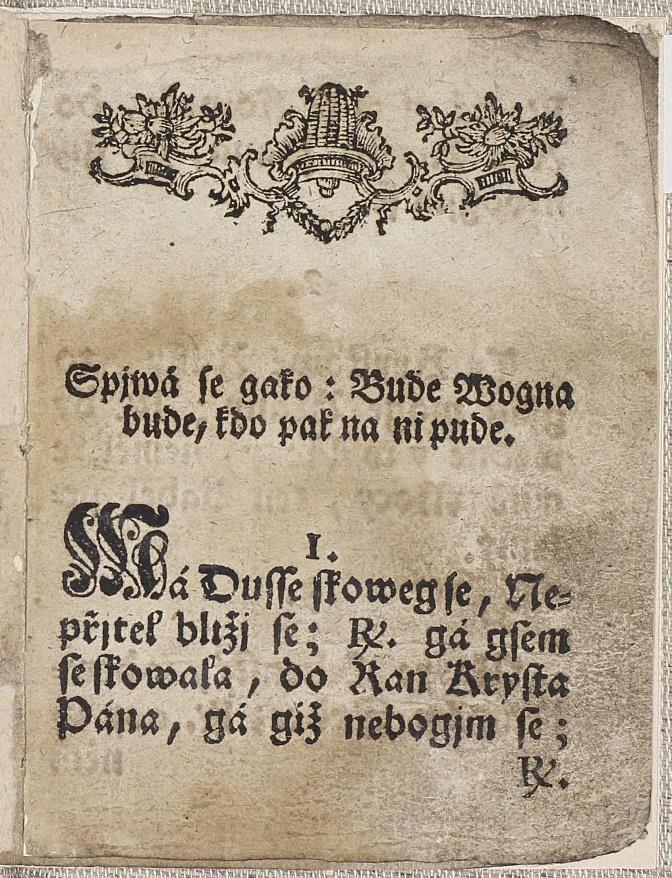 Spjwá se gako : Bude Wogna
bude, kdo pak na ni pude.
I.
Má Dusse skoweg se, Ne-
přjtel bližj se; ℟. gá gsem
se skowala, do Ran Krysta
Pána, gá giž nebogjm se;
℟.